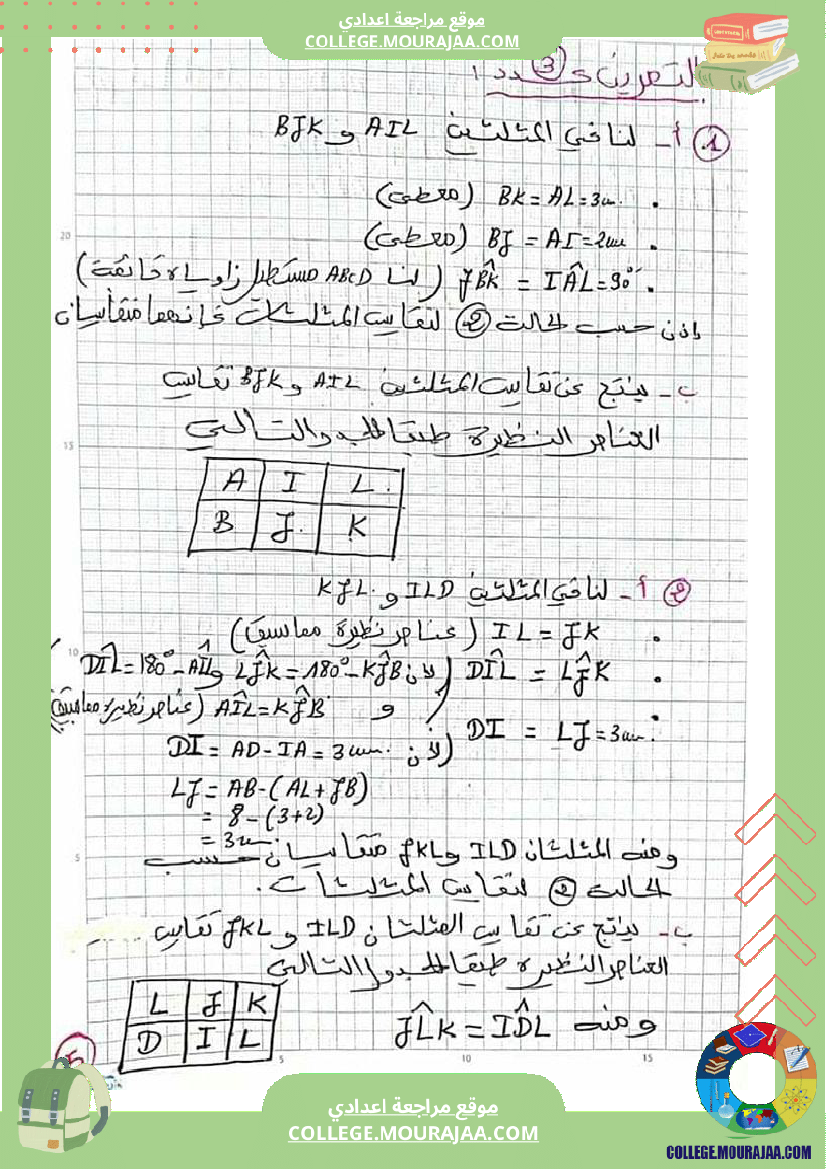 موقع مراجعة اعدادي
COLLEGE.MOURAJAA.COM
التمرين عدد 3 :
1 أ- لنا في المثلثين AIL و BJK
. BK = AL = 3cm (معطى)
. BJ = AI = 2cm (معطى)
. JB̂K = IÂL = 90° (لنا ABCD مستطيل زواياه قائمة)
إذن حسب الحالة 2 لتقايس المثلثات فإنهما متقايسان
ب- ينتج عن تقايس المثلثين AIL و BJK تقايس
العناصر النظيرة طبقا للجدول التالي
A I L
B J K
2 أ- لنا في المثلثين ILD و KJL
. IL = JK (عناصر نظيرة مقايسة)
. DÎL = LĴK (لأن LĴK = 180° - KĴB و DÎL = 180° - AÎL
و AÎL = KĴB (عناصر نظيرة مقايسة)
. DI = LJ = 3cm
(لأن DI = AD - IA = 3cm
LJ = AB - (AL + JB)
= 8 - (3+2)
= 3cm
ومنه المثلثان ILD و JKL متقايسان حسب
الحالة 2 لتقايس المثلثات.
ب- ينتج عن تقايس المثلثان ILD و JKL تقايس
العناصر النظيرة طبقا للجدول التالي
L J K
D I L
ومنه JL̂K = ID̂L
5
موقع مراجعة اعدادي
COLLEGE.MOURAJAA.COM
COLLEGE.MOURAJAA.COM